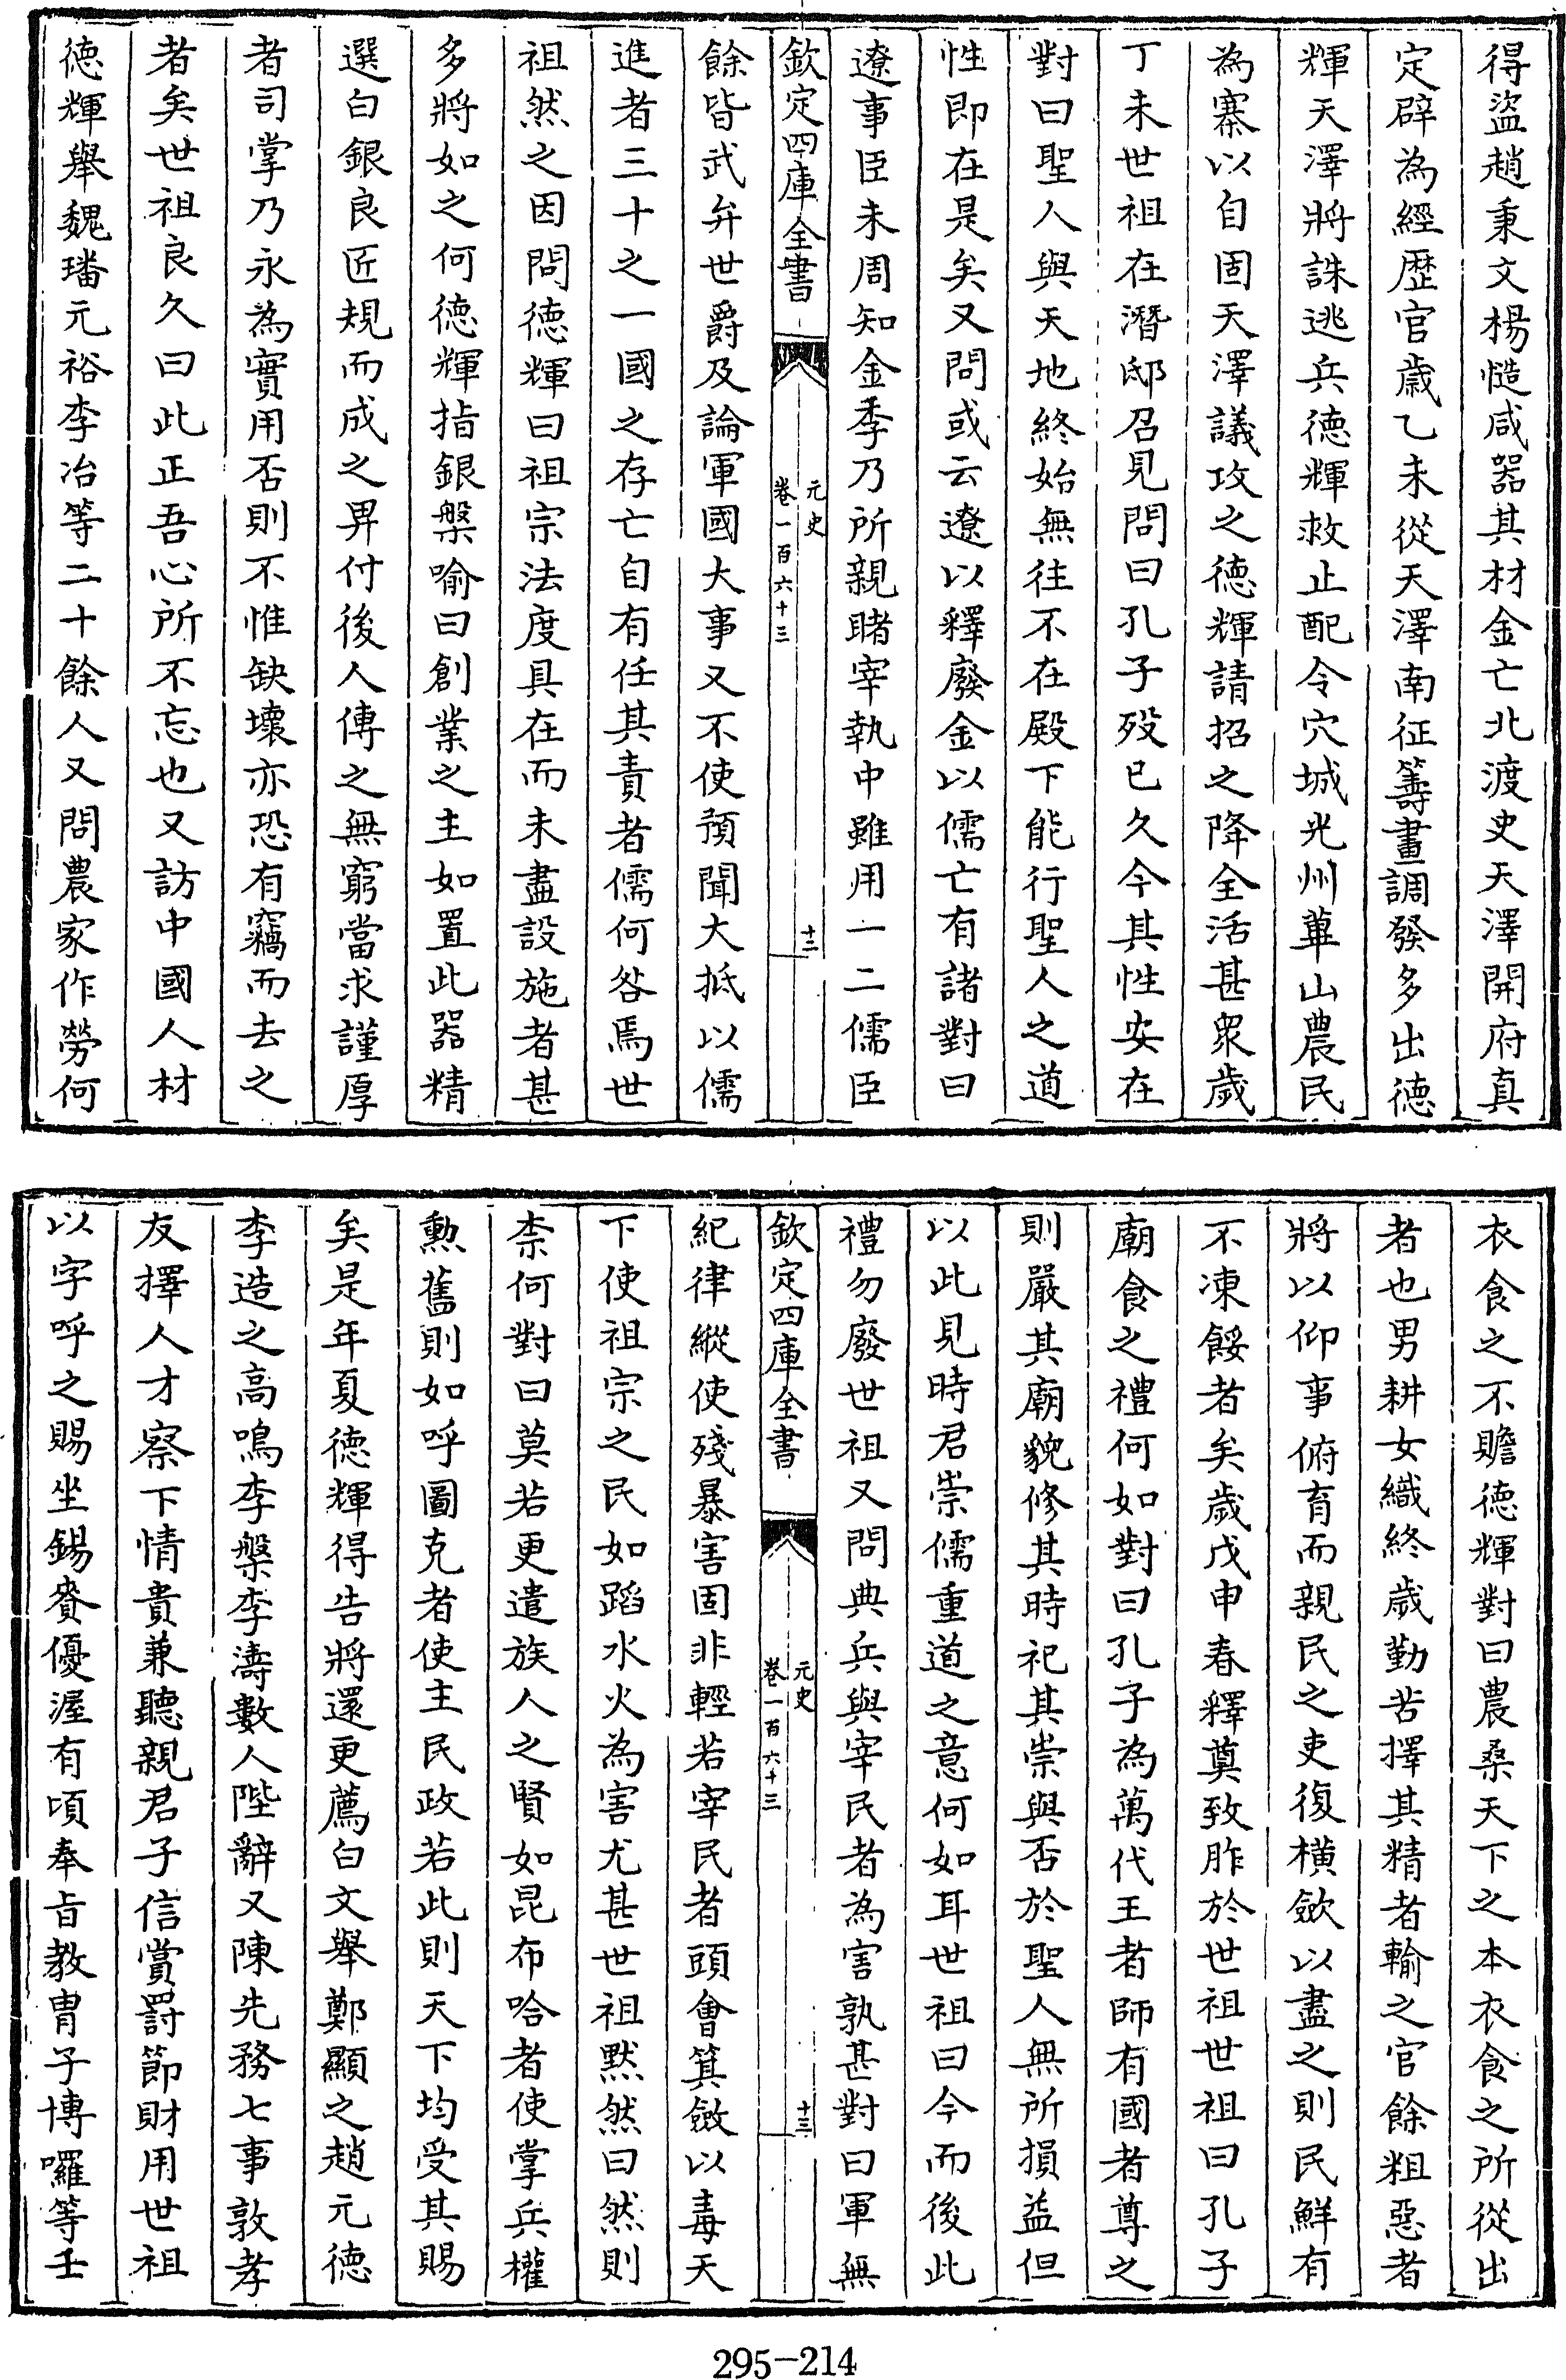 得盜趙秉文楊慥咸器其材金亡北渡史天澤開府真
定辟為經歴官歳乙未從天澤南征籌畫調發多出德
輝天澤將誅逃兵德輝救止配令穴城光州華山農民
為寨以自固天澤議攻之德輝請招之降全活甚衆歲
丁未世祖在潛邸召見問曰孔子歿已久今其性安在
對曰聖人與天地終始無往不在殿下能行聖人之道
性即在是矣又問或云遼以釋廢金以儒亡有諸對曰
遼事臣未周知金季乃所親睹宰執中雖用一二儒臣
欽定四庫全書
元史
卷一百六十三
十二
餘皆武弁世爵及論軍國大事又不使預聞大抵以儒
進者三十之一國之存亡自有任其責者儒何咎焉世
祖然之因問德輝曰祖宗法度具在而未盡設施者甚
多將如之何德輝指銀槃喻曰創業之主如置此器精
選白銀良匠規而成之畀付後人傳之無窮當求謹厚
者司掌乃永為寶用否則不惟缺壞亦恐有竊而去之
者矣世祖良久曰此正吾心所不忘也又訪中國人材
德輝舉魏璠元裕李冶等二十餘人又問農家作勞何
衣食之不贍德輝對曰農桑天下之本衣食之所從出
者也男耕女織終歲勤苦擇其精者輸之官餘粗惡者
將以仰事俯育而親民之吏復橫斂以盡之則民鮮有
不凍餒者矣歲戊申春釋奠致胙於世祖世祖曰孔子
廟食之禮何如對曰孔子為萬代王者師有國者尊之
則嚴其廟貌修其時祀其崇與否於聖人無所損益但
以此見時君崇儒重道之意何如耳世祖曰今而後此
禮勿廢世祖又問典兵與宰民者為害孰甚對曰軍無
欽定四庫全書
元史
卷一百六十三
十三
紀律縱使殘暴害固非輕若宰民者頭會箕斂以毒天
下使祖宗之民如蹈水火為害尤甚世祖默然曰然則
柰何對曰莫若更遣族人之賢如昆布哈者使掌兵權
勲舊則如呼圖克者使主民政若此則天下均受其賜
矣是年夏德輝得告將還更薦白文舉鄭顯之趙元德
李造之高鳴李槃李濤數人陛辭又陳先務七事敦孝
友擇人才察下情貴兼聽親君子信賞罰節財用世祖
以字呼之賜坐錫賚優渥有頃奉旨教胄子博囉等壬
295-214